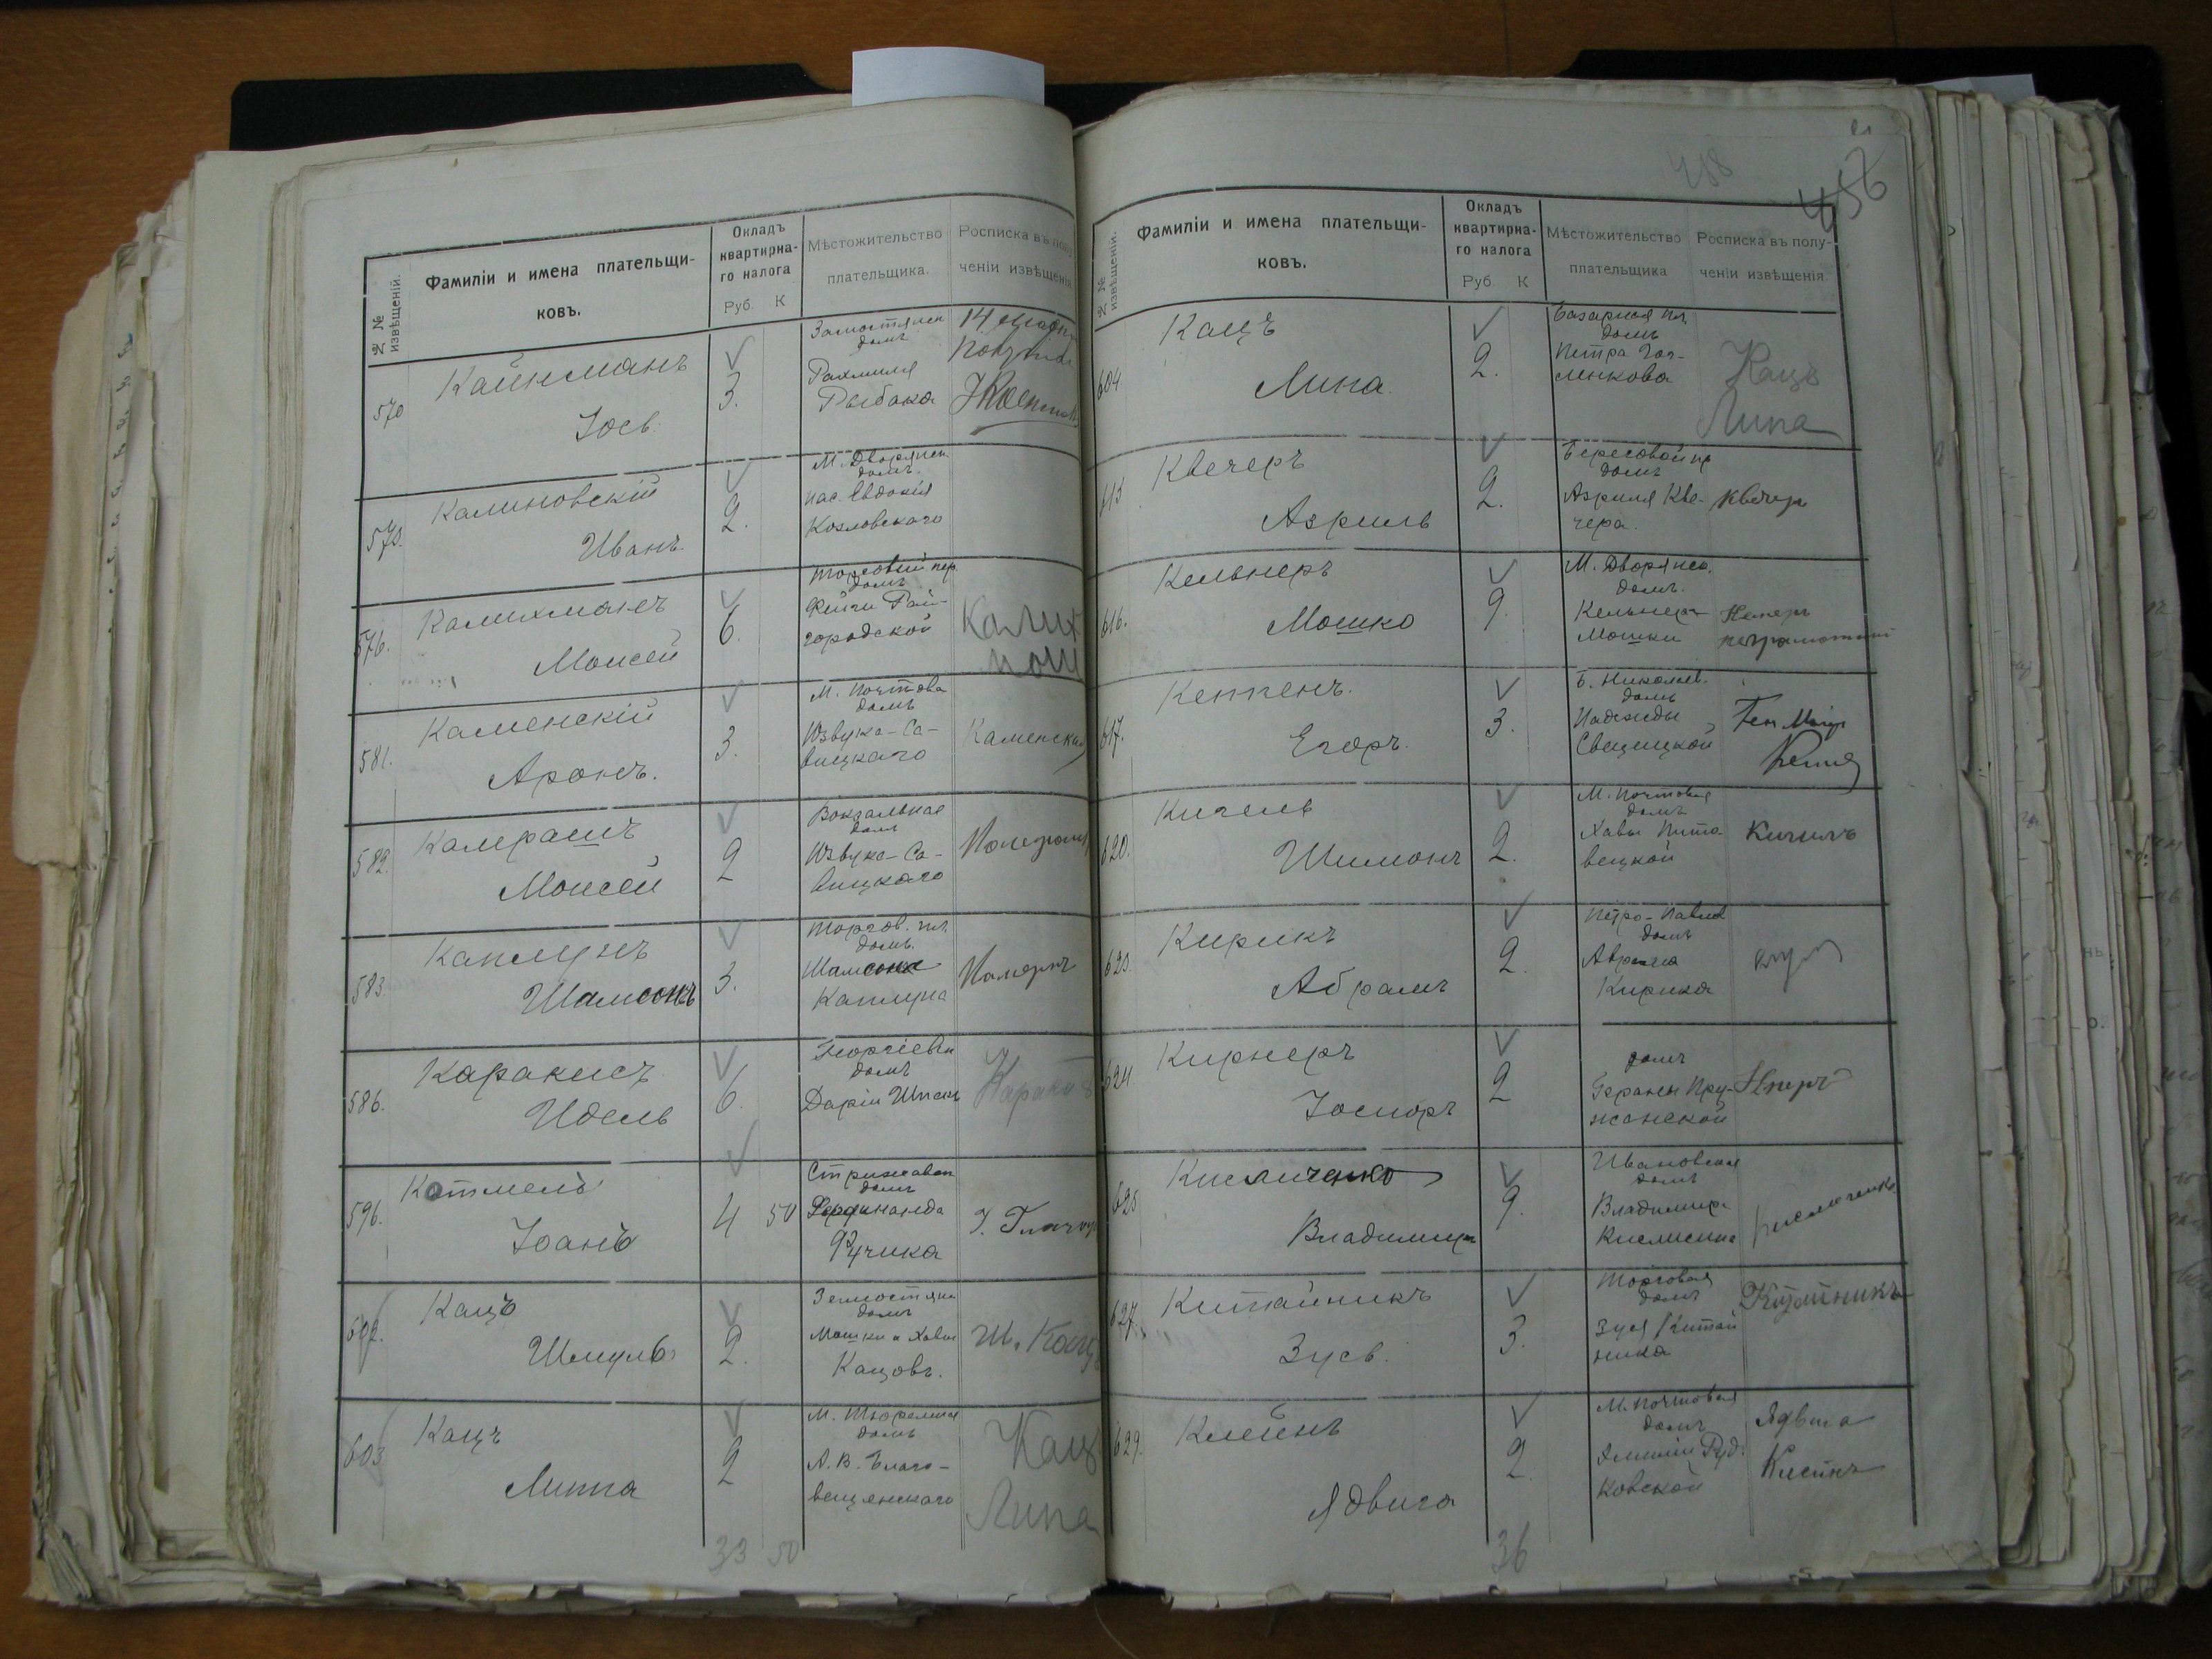 № №
извѣщеній.
Фамиліи и имена плательщи-
ковъ.
Окладъ
квартирна-
го налога
Руб. К
Мѣстожительство
плательщика.
Росписка въ полу
ченіи извѣщенія
570
Кайнманъ
Іось
3.
домъ
Рахмиля
Рыбака
14
Калиновскій
Иванъ
2.
М. Дворянск
домъ
нас. Евдокія
Козловскаго
576.
Калихманъ
Моисей
6.
Торговый пер.
домъ
Фейги Рай-
городской
Калих
581.
Каменскій
Аронъ.
3.
М. Почтова
домъ
Извука-Са-
вицкаго
Каменскій
582.
Камрашъ
Моисей
2
Вокзальная
домъ
Извука-Са-
вицкаго
583.
Каплунъ
Шамсонъ
3.
Торгов. пл.
домъ.
Шамсона
Каплуна
586.
Каракисъ
Идель
6.
Георгіевск
домъ
Даріи Шпакъ
Каракис
596.
Котмель
Іоанъ
4 50
Стрижавск
домъ
Фердинанда
602.
Кацъ
Шмуль
2.
Замостянс
домъ
Мошки и Хавы
Кацовъ.
Ш. Кацъ
603
Кацъ
Липа
2
М. Тюремная
домъ
А. В. Благо-
вещенскаго
Кац
Липа
33 50
458
456
№ №
извѣщеній.
Фамиліи и имена плательщи-
ковъ.
Окладъ
квартирна-
го налога
Руб. К
Мѣстожительство
плательщика
Росписка въ полу-
ченіи извѣщенія.
604
Кацъ
Липа.
2.
Базарная пл.
домъ
Петра
Кацъ
Липа
613
Квечеръ
Азриль
2.
Береговой пр
домъ
Азриля Кве-
чера.
Квечер
616.
Кельнеръ
Мошко
9.
М. Дворянск.
домъ.
Кельнера
Мошки
неграмотный
617.
Кеппенъ.
Егоръ.
3.
Б. Николаев.
домъ
Надежды
Свещицкой
Ген. Маіор
620.
Кигель
Шимонъ
2.
М. Почтовая
домъ
Хавы Пято-
вецкой
Кигилъ
623.
Кирикъ
Абрамъ
2.
Петро-Павлов
домъ
Аврама
Кирика
624
Кирнеръ
2
домъ
Пру-
жанской
625
Кисличенко
Владимиръ
9.
Ивановская
домъ
Владимира
Кисличенко
627.
Китайникъ
Зусь.
3.
Торговая
домъ
Зуся Китай
ника
Китайникъ
629.
Клейнъ
Ядвига
2.
М. Почтовая
домъ
Эмиліи Руд-
ковской
Ядвига
Клейнъ
36